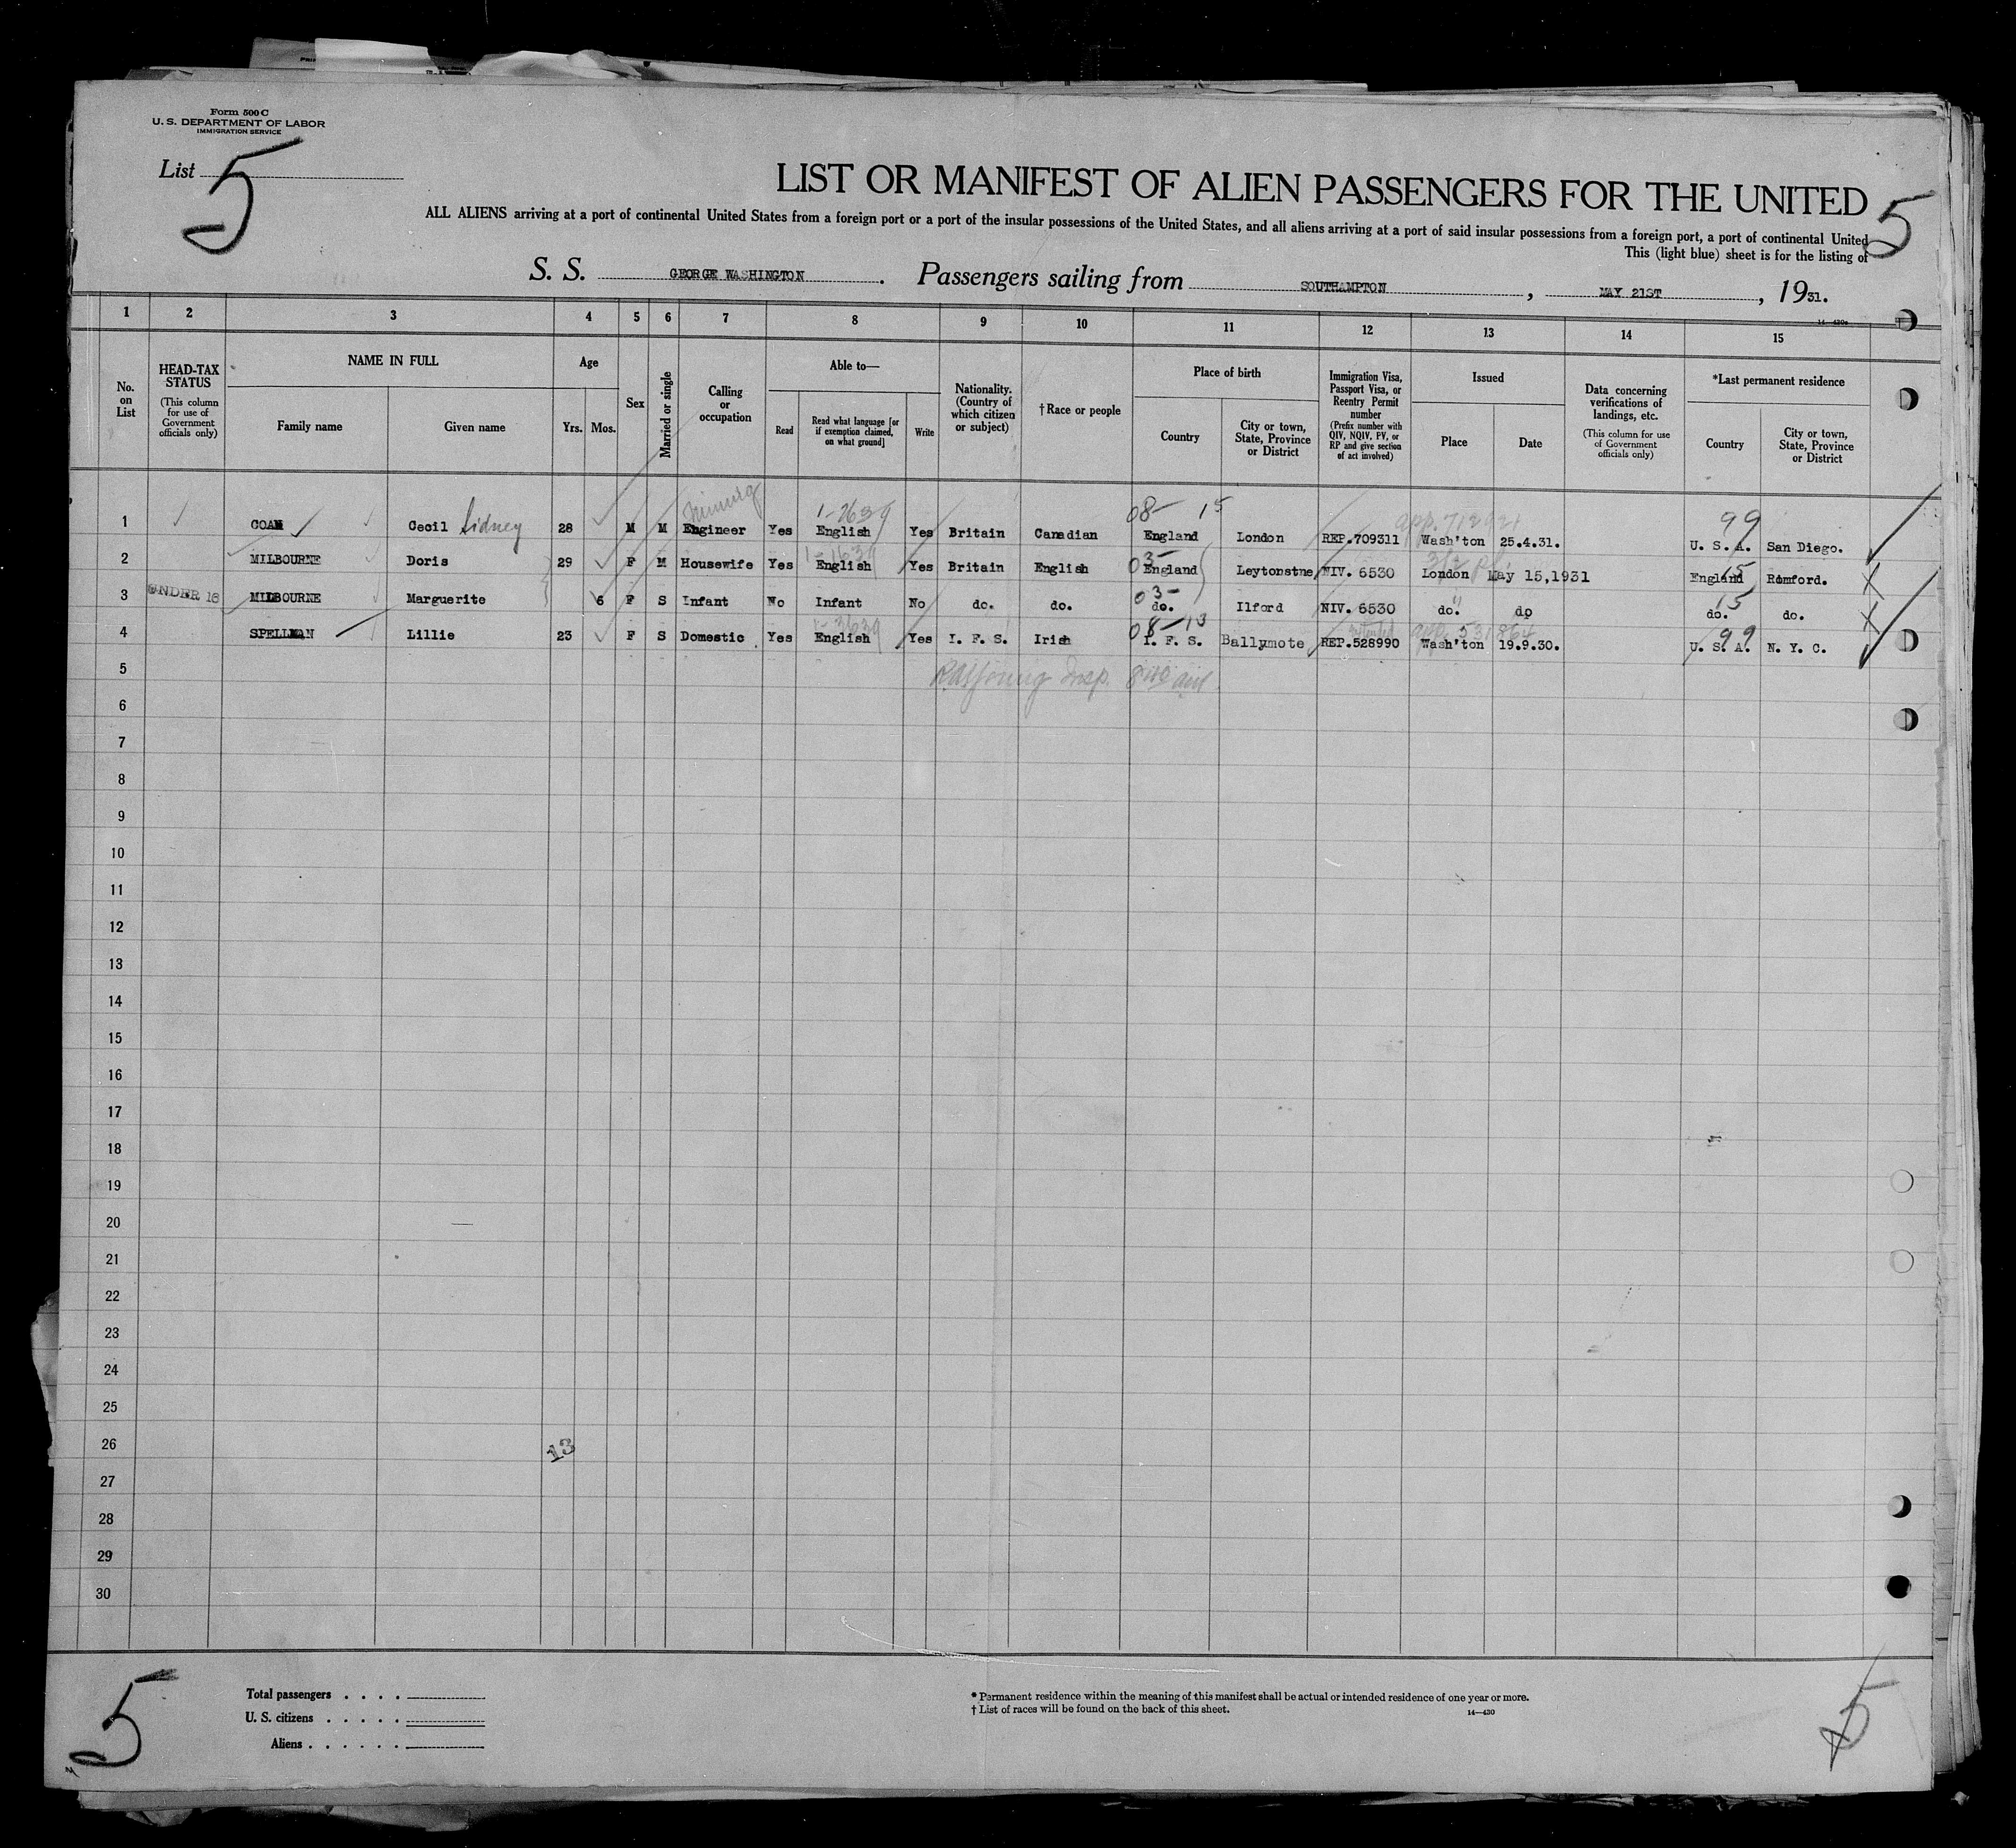 Form 500 C
U. S. DEPARTMENT OF LABOR
IMMIGRATION SERVICE
List 5
LIST OR MANIFEST OF ALIEN PASSENGERS FOR THE UNITED
5
ALL ALIENS arriving at a port of continental United States from a foreign port or a port of the insular possessions of the United States, and all aliens arriving at a port of said insular possessions from a foreign port, a port of continental United
This (light blue) sheet is for the listing of
S. S. GEORGE WASHINGTON. Passengers sailing from SOUTHAMPTON, MAY 21ST, 1931.
14—430a
1 2 3 4 5 6 7 8 9 10 11 12 13 14 15
No. on List
HEAD-TAX STATUS
(This column for use of Government officials only)
NAME IN FULL
Family name
Given name
Age
Yrs. Mos.
Sex
Married or single
Calling or occupation
Able to—
Read
Read what language [or if exemption claimed, on what ground]
Write
Nationality. (Country of which citizen or subject)
† Race or people
Place of birth
Country
City or town, State, Province or District
Immigration Visa, Passport Visa, or Reentry Permit number
(Prefix number with QIV, NQIV, PV, or RP and give section of act involved)
Issued
Place
Date
Data concerning verifications of landings, etc.
(This column for use of Government officials only)
*Last permanent residence
Country
City or town, State, Province or District
mining 1-2639 08- 15 app. 712921 99
1 COAN Cecil Sidney 28 M M Engineer Yes English Yes Britain Canadian England London REP.709311 Wash'ton 25.4.31. U. S. A. San Diego.
03- 15
2 MILBOURNE Doris 29 F M Housewife Yes English Yes Britain English England Leytonstne NIV. 6530 London May 15,1931 England Romford.
03- 15
3 UNDER 16 MILBOURNE Marguerite 6 F S Infant No Infant No do. do. do. Ilford NIV. 6530 do. do do. do.
08-13 app. 531864 99
4 SPELLMAN Lillie 23 F S Domestic Yes English Yes I. F. S. Irish I. F. S. Ballymote REP.528990 Wash'ton 19.9.30. U. S. A. N. Y. C.
5
Insp.
6
7
8
9
10
11
12
13
14
15
16
17
18
19
20
21
22
23
24
25
26
13
27
28
29
30
5
Total passengers . . . .
U. S. citizens . . . . .
Aliens . . . . . .
* Permanent residence within the meaning of this manifest shall be actual or intended residence of one year or more.
† List of races will be found on the back of this sheet.
14—430
5